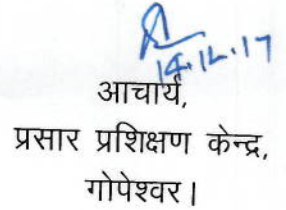 14.12.17
आचार्य,
प्रसार प्रशिक्षण केन्द्र,
गोपेश्वर।